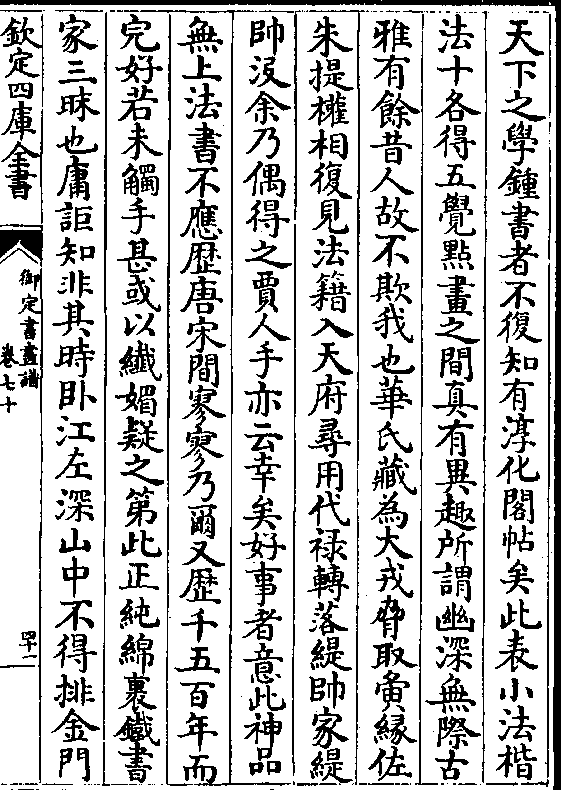 天下之學鍾書者不復知有淳化閣帖矣此表小法楷
法十各得五覺點畫之間真有異趣所謂幽深無際古
雅有餘昔人故不欺我也華氏藏為大戎脅取夤縁佐
朱提權相復見法籍入天府尋用代禄轉落緹帥家緹
帥沒余乃偶得之賈人手亦云幸矣好事者意此神品
無上法書不應歴唐宋間寥寥乃爾又歴千五百年而
完好若未觸手甚或以纎媚疑之第此正純綿裹鐵書
家三昧也庸詎知非其時卧江左深山中不得排金門
欽定四庫全書
御定書畫譜
卷七十
四十一